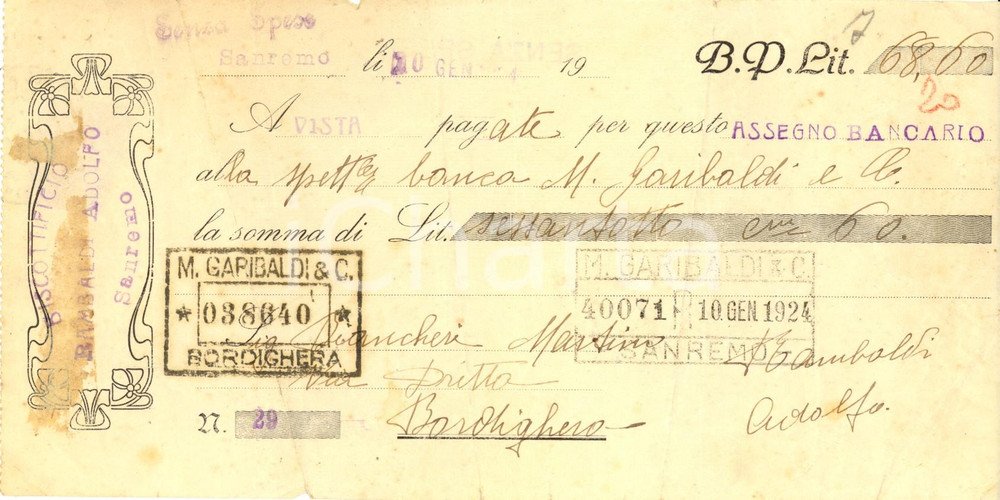 Senza Spese
Sanremo li 10 GEN 19 B.P. Lit. 68,60
20
A VISTA pagate per questo ASSEGNO BANCARIO
alla spett. banca M. Garibaldi e C.
la somma di Lit. sessantotto e 60.
BISCOTTIFICIO
RAMBALDI ADOLFO
Sanremo
M. GARIBALDI & C.
038640
BORDIGHERA
M. GARIBALDI & C.
40071 10 GEN 1924
SANREMO
Sig Biancheri Martino
Via Dritta
Bordighera
Rambaldi
Adolfo.
N. 29
iCharta